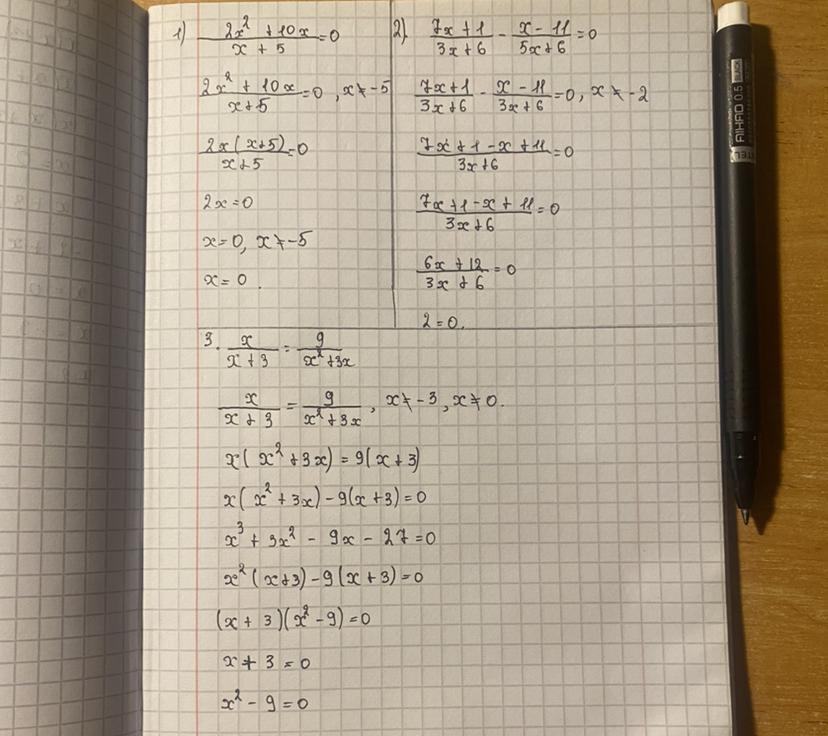 1) (2x² + 10x)/(x + 5) = 0
(2x² + 10x)/(x + 5) = 0, x ≠ -5
(2x(x + 5))/(x + 5) = 0
2x = 0
x = 0, x ≠ -5
x = 0.
2) (7x + 1)/(3x + 6) - (x - 11)/(5x + 6) = 0
(7x + 1)/(3x + 6) - (x - 11)/(3x + 6) = 0, x ≠ -2
(7x + 1 - x + 11)/(3x + 6) = 0
(7x + 1 - x + 11)/(3x + 6) = 0
(6x + 12)/(3x + 6) = 0
2 = 0.
3. x/(x + 3) = 9/(x² + 3x)
x/(x + 3) = 9/(x² + 3x), x ≠ -3, x ≠ 0.
x(x² + 3x) = 9(x + 3)
x(x² + 3x) - 9(x + 3) = 0
x³ + 3x² - 9x - 27 = 0
x²(x + 3) - 9(x + 3) = 0
(x + 3)(x² - 9) = 0
x + 3 = 0
x² - 9 = 0
AIHAO 0.5